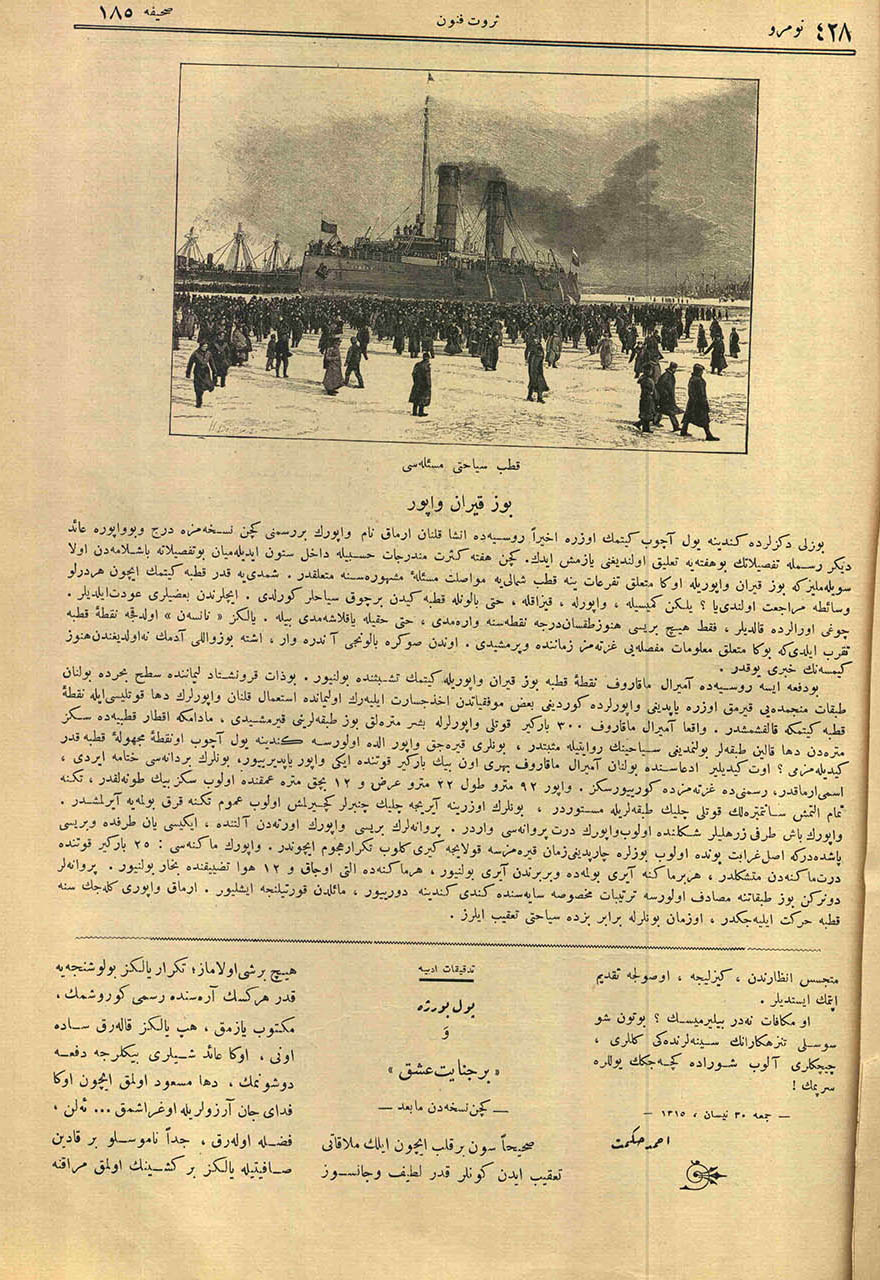 نومرو ٤٢٨
ثروت فنون
صحیفه ١٨٥
قطب سیاحتی مسئله‌سی
بوز قیران واپور
بوزلی دکزلرده کندینه یول آچوب کیتمك اوزره اخیراً روسیه‌ده انشا قلنان ارماق نام واپورك بررسمنی کچن نسخه‌مزه درج وبوواپوره عائد
دیکر رسمله تفصیلاتك بوهفته‌یه تعلیق اولندیغنی یازمش ایدك. کچن هفته کثرت مندرجات حسبیله داخل ستون ایدیله‌میان بوتفصیلاته باشلامه‌دن اولا
سویله‌ملیزکه بوز قیران واپوریله اوکا متعلق تفرعات ینه قطب شمالی‌یه مواصلت مسئلهٔ مشهوره‌سنه متعلقدر. شمدی‌یه قدر قطبه کیتمك ایچون هردرلو
وسائطه مراجعت اولندی‌یا؟ یلکن کمیسیله، واپورله، قیزاقله، حتی بالونله قطبه کیدن برچوق سیاحلر کورلدی. ایچلرندن بعضیلری عودت‌ایلدیلر.
چوغی اورالرده قالدیلر، فقط هیچ بریسی هنوزطقسان‌درجه نقطه‌سنه واره‌مدی، حتی حقیله یاقلاشه‌مدی بیله. یالکز «نانسن» اولدقجه نقطهٔ قطبه
تقرب ایلدی‌که بوکا متعلق معلومات مفصله‌یی غزته‌مز زماننده ویرمشیدی. اوندن صوکره بالونجی آندره وار، اشته بوزواللی آدمك نه‌اولدیغندن‌هنوز
کیمسه‌نك خبری یوقدر.
بودفعه ایسه روسیه‌ده آمیرال ماقاروف نقطهٔ قطبه بوز قیران واپوریله کیتمك تشبثنده بولنیور. بوذات قرونشتاد لیماننده سطح بحرده بولنان
طبقات منجمده‌یی قیرمق اوزره یاپدیغی واپورلرده کوردیکی بعض موفقیاتدن اخذجسارت ایلیه‌رك اولیمانده استعمال قلنان واپورلرك دها قوتلیسی‌ایله نقطهٔ
قطبه کیتمکه قالقشمشدر. واقعا آمیرال ماقاروف ٣٠٠ بارکیر قوتلی واپورلرله بشر متره‌لق بوز طبقه‌لرینی قیرمشیدی، مادامکه اقطار قطبیه‌ده سکز
متره‌دن دها قالین طبقه‌لر بولنمدیغی سیاحینك روایتیله مثبتدر، بونلری قیره‌جق واپور الده اولورسه کندینه یول آچوب اونقطهٔ مجهولهٔ قطبه قدر
کیدیله‌مزمی؟ اوت کیدیلیر ادعاسنده بولنان آمیرال ماقاروف بهری اون بیك بارکیر قوتنده ایکی واپور یاپدیرییور، بونلرك بردانه‌سی ختامه ایردی،
اسمی‌ارماقدر، رسمنی‌ده غزته‌مزده کورییورسکز. واپور ٩٢ مترو طول ٢٢ مترو عرض و ١٢ بچق متره عمقنده اولوب سکز بیك طونه‌لقدر، تکنه
تمام التمش سانتیمتره‌لك قوتلی چلیك طبقه‌لریله مستوردر، بونلرك اوزرینه آیریجه چلیك چنبرلر کچیرلمش اولوب عموم تکنه قرق بولمه‌یه آیرلمشدر.
واپورك باش طرفی زرهلیلر شکلنده اولوب‌واپورك درت پروانه‌سی واردر. پروانه‌لرك بریسی واپورك اورته‌دن آلتنده، ایکیسی یان طرفده وبریسی
باشده‌درکه اصل‌غرابت بونده اولوب بوزلره چارپدیغی‌زمان قیره‌مزسه قولایجه‌کیری‌کلوب تکرارهجوم ایچوندر. واپورك ماکنه‌سی: ٢٥ بارکیر قوتنده
درت‌ماکنه‌دن متشکلدر، هربرماکنه آیری بولمه‌ده وبربرندن آیری بولنیور، هرماکنه‌ده التی اوجاق و ١٢ هوا تضییقنده بخار بولنیور. پروانه‌لر
دونرکن بوز طبقاتنه مصادف اولورسه ترتیبات مخصوصه سایه‌سنده کندی کندینه دورییور، مانلدن قورتیلنجه ایشلیور. ارماق واپوری کله‌جك سنه
قطبه حرکت ایلیه‌جکدر، اوزمان بونلرله برابر بزده سیاحتی تعقیب ایلرز.
متجسس انظارندن، کیزلیجه، اوصولجه تقدیم
ایتمك ایستدیلر.
او مکافات نه‌در بیلیرمیسك؟ بوتون شو
سوسلی تنزهکارانك سینه‌لرنده‌کی کللری،
چیچکلری آلوب شوراده کچه‌جکك یوللره
سرپمك!
— جمعه ٣٠ نیسان، ١٣١٥ —
احمد حکمت
تدقیقات ادبیه
پول بورژه
و
«برجنایت عشق»
— کچن نسخه‌دن مابعد —
صحیحاً سون برقلب ایچون ایلك ملاقاتی
تعقیب ایدن کونلر قدر لطیف وجانسوز
هیچ برشی اولاماز؛ تکرار یالکز بولوشنجه‌یه
قدر هرکسك آره‌سنده رسمی کوروشمك،
مکتوب یازمق، هپ یالکز قاله‌رق ساده
اونی، اوکا عائد شیلری بیکلرجه دفعه
دوشونمك، دها مسعود اولمق ایچون اوکا
فدای جان آرزولریله اوغراشمق... ئه‌لن،
فضله اوله‌رق، جداً ناموسلو بر قادین
صافیتیله یالکز بر کشینك اولمق مراقنه